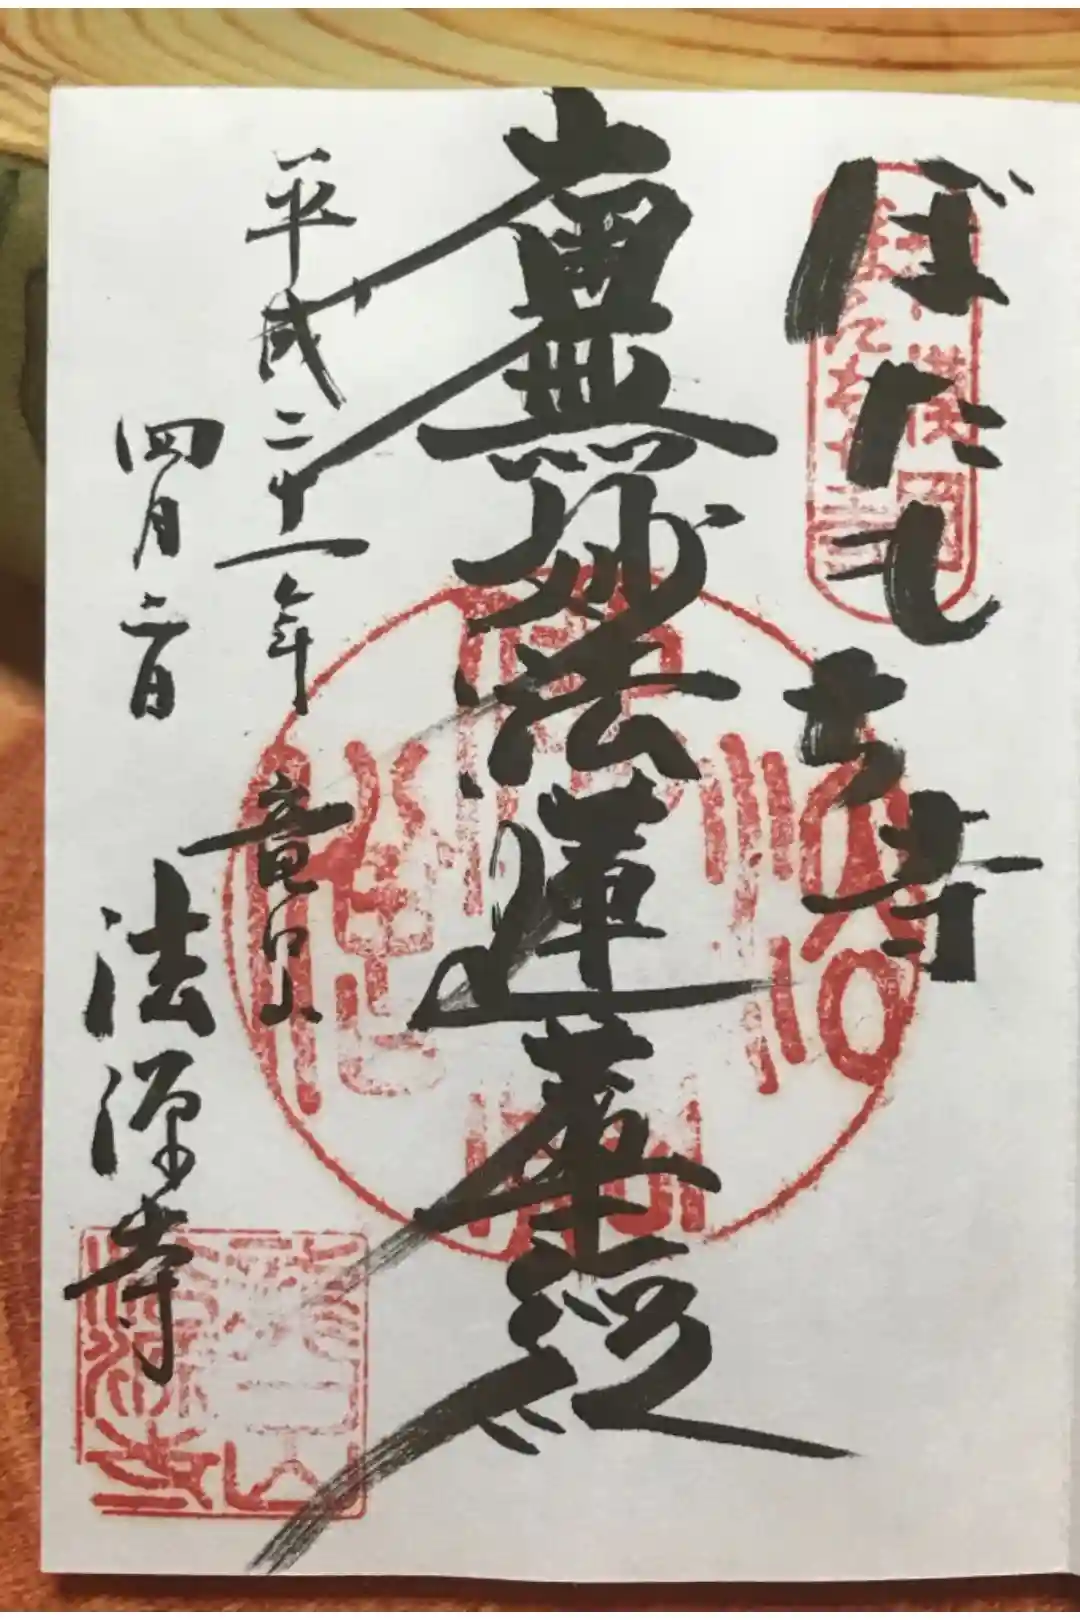 ぼたもち寺
南無妙法蓮華経
平成二十一年
四月二日
竜口山
法源寺